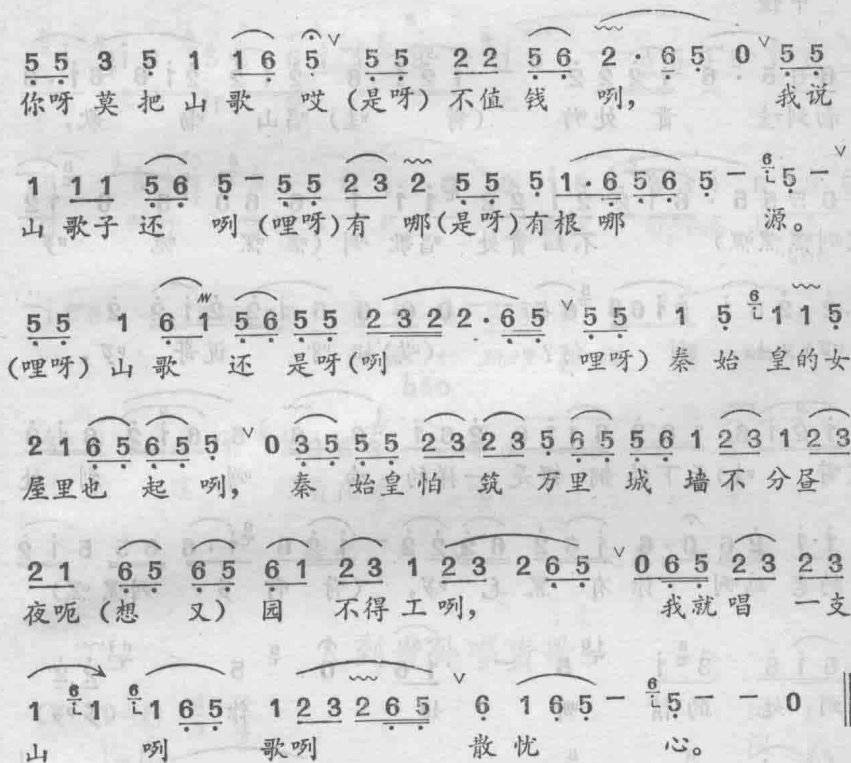 5 5 3 5 1 1 6 5 ∨ 5 5 2 2 5 6 2 · 6 5 0 ∨ 5 5
你呀 莫 把 山 歌 哎 (是呀) 不值 钱 咧, 我说
1 1 1 5 6 5 − 5 5 2 3 2 5 5 5 1 · 6 5 6 5 − 5 − ∨
山 歌子 还 咧 (哩呀)有 哪(是呀)有根 哪 源。
5 5 1 6 1 5 6 5 5 2 3 2 2 · 6 5 ∨ 5 5 1 5 1 1 5
(哩呀) 山 歌 还 是呀(咧 哩呀) 秦 始 皇的女
2 1 6 5 6 5 5 ∨ 0 3 5 5 5 2 3 2 3 5 6 5 5 6 1 2 3 1 2 3
屋里也 起 咧, 秦 始皇怕 筑 万里 城 墙不 分昼
2 1 6 5 6 5 6 1 2 3 1 2 3 2 6 5 ∨ 0 6 5 2 3 2 3
夜呃 (想 又) 园 不得工咧, 我就唱 一支
1 1 1 6 5 1 2 3 2 6 5 ∨ 6 1 6 5 − 5 − − 0
山 咧 歌咧 散 忧 心。